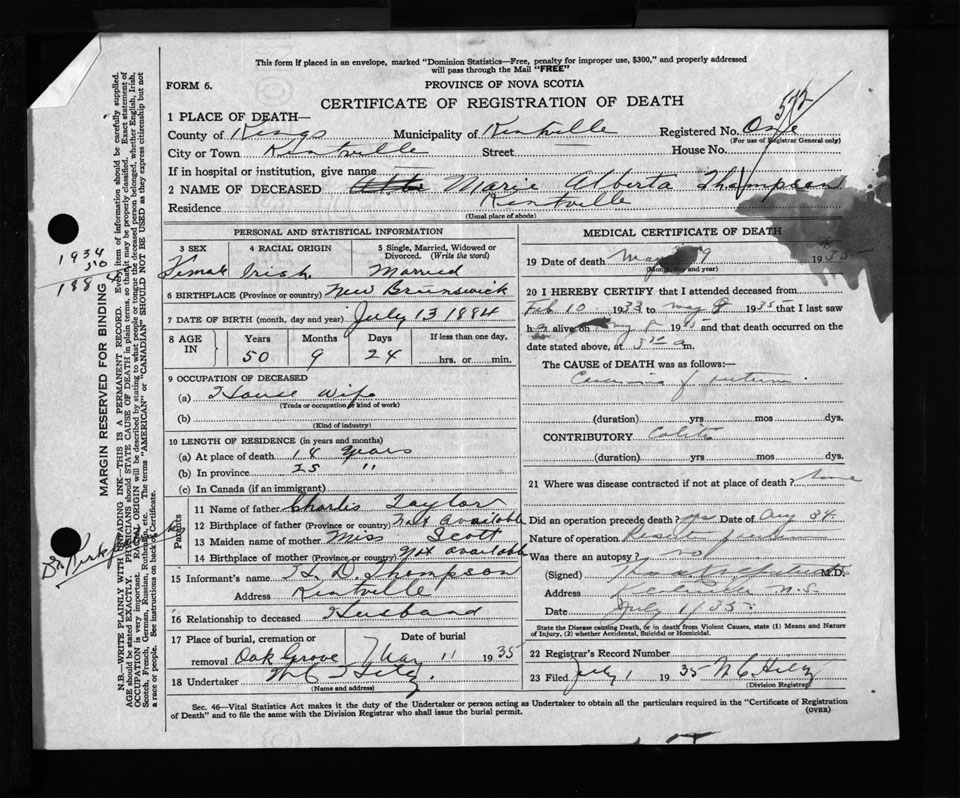 This form if placed in an envelope, marked "Dominion Statistics—Free, penalty for improper use, $300," and properly addressed
will pass through the Mail "FREE"
FORM 6.
PROVINCE OF NOVA SCOTIA
CERTIFICATE OF REGISTRATION OF DEATH
572
1 PLACE OF DEATH—
County of Kings Municipality of Kentville Registered No. One
(For use of Registrar General only)
City or Town Kentville Street House No.
If in hospital or institution, give name
2 NAME OF DECEASED Marie Alberta Thompson
Residence Kentville
(Usual place of abode)
MARGIN RESERVED FOR BINDING
N.B.—WRITE PLAINLY WITH UNFADING INK—THIS IS A PERMANENT RECORD. Every item of information should be carefully supplied.
AGE should be stated EXACTLY. PHYSICIANS should STATE CAUSE OF DEATH in plain terms, so that it may be properly classified. Exact statement of
OCCUPATION is very important. RACIAL ORIGIN will be described by stating to what people or tongue the deceased person belonged, whether English, Irish,
Scotch, French, German, Russian, Ruthenian, etc. The terms "AMERICAN" or "CANADIAN" SHOULD NOT BE USED as they express citizenship but not
a race or people. See instructions on back of Certificate.
1934
50
1884
PERSONAL AND STATISTICAL INFORMATION
3 SEX 4 RACIAL ORIGIN 5 Single, Married, Widowed or
Divorced. (Write the word)
Female Irish Married
6 BIRTHPLACE (Province or country) New Brunswick
7 DATE OF BIRTH (month, day and year) July 13 1884
8 AGE IN Years Months Days If less than one day,
50 9 24 hrs. or min.
9 OCCUPATION OF DECEASED
(a) House Wife
(Trade or occupation or kind of work)
(b)
(Kind of industry)
10 LENGTH OF RESIDENCE (in years and months)
(a) At place of death 14 years
(b) In province 25 "
(c) In Canada (if an immigrant)
Parents
11 Name of father Charles Taylor
12 Birthplace of father (Province or country) Not available
13 Maiden name of mother Miss Scott
14 Birthplace of mother (Province or country) Not available
15 Informant's name H. D. Thompson
Address Kentville
16 Relationship to deceased Husband
17 Place of burial, cremation or Date of burial
removal Oak Grove May 11 1935
18 Undertaker
(Name and address)
MEDICAL CERTIFICATE OF DEATH
19 Date of death May 9 1935
(Month, day and year)
20 I HEREBY CERTIFY that I attended deceased from
Feb 10 1933 to May 8 1935 that I last saw
h alive on May 8 19 and that death occurred on the
date stated above, at m.
The CAUSE of DEATH was as follows:—
(duration) yrs mos dys.
CONTRIBUTORY
(duration) yrs mos dys.
21 Where was disease contracted if not at place of death?
Did an operation precede death? yes Date of Aug 34
Nature of operation
Was there an autopsy? no
(Signed) M.D.
Address Kentville N.S.
Date July 1/35
State the Disease causing Death, or in death from Violent Causes, state (1) Means and Nature
of Injury, (2) whether Accidental, Suicidal or Homicidal.
22 Registrar's Record Number
23 Filed July 1 1935
(Division Registrar)
Sec. 46—Vital Statistics Act makes it the duty of the Undertaker or person acting as Undertaker to obtain all the particulars required in the "Certificate of Registration
of Death" and to file the same with the Division Registrar who shall issue the burial permit.
(OVER)